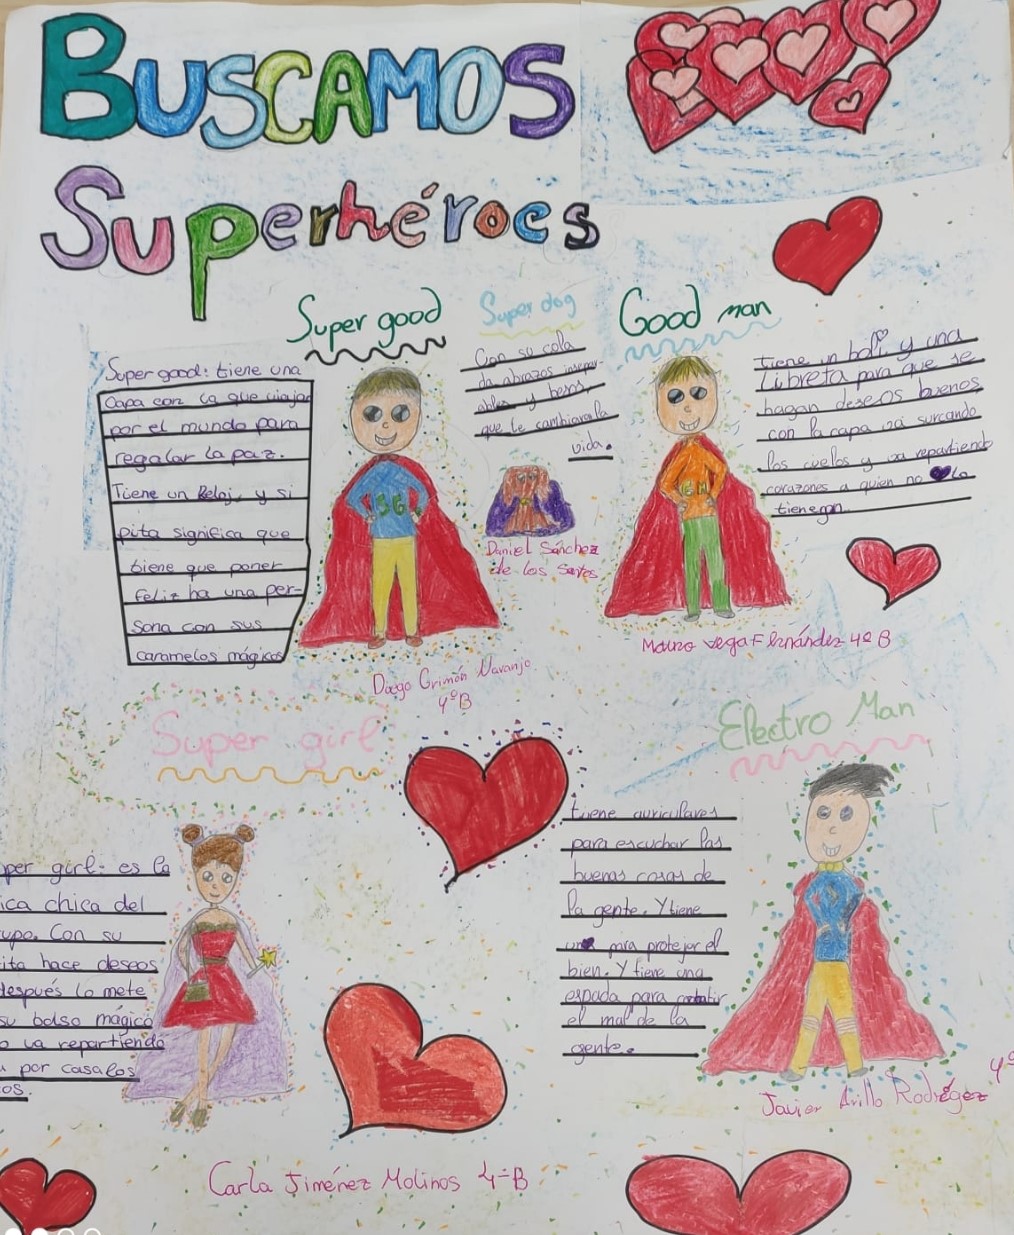 BUSCAMOS
Superhéroes
Super good
Super good: tiene una
capa con la que viaja
por el mundo para
regalar la paz.
Tiene un Reloj, y si
pita significa que
tiene que poner
feliz ha una per-
sona con sus
caramelos mágicos
SG
Diego Grimón Naranjo
4ºB
Super dog
Con su cola
da abrazos insepar-
ables y besos,
que te cambiaran la
vida.
Daniel Sánchez
de los Santos
Good man
tiene un boli y una
libreta para que se
hagan deseos buenos
con la capa va surcando
los cuelos y va repartiendo
corazones a quien no la
tienegan
GM
Mauro Vega Fernández 4º B
Super girl
per girl: es la
ica chica del
upo. Con su
ita hace deseos
después lo mete
su bolso mágico
o va repartiendo
por casa los
os.
Carla Jiménez Molinos 4ºB
Electro Man
tiene auriculares
para escuchar las
buenas cosas de
la gente. Y tiene
un para protejer el
bien. Y tiene una
espada para combatir
el mal de la
gente.
Javier Arillo Rodrégez 4º